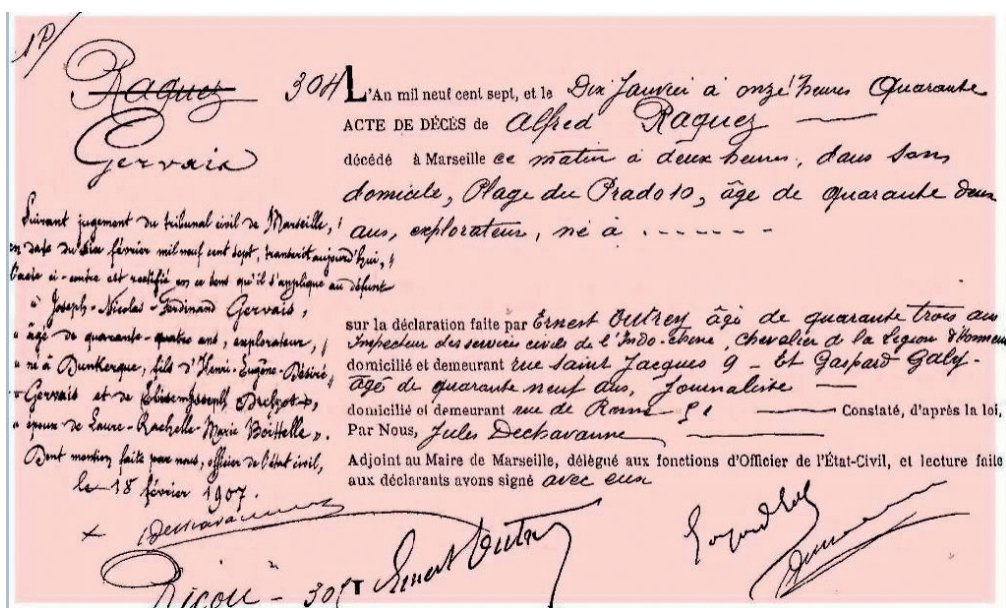 1D
Raquez
Gervais
Suivant jugement du tribunal civil de Marseille,
en date du six février mil neuf cent sept, transcrit aujourd'hui,
l'acte ci-contre est rectifié en ce sens qu'il s'applique au défunt
à Joseph-Nicolas-Ferdinand Gervais,
" âgé de quarante-quatre ans, explorateur,
" né à Dunkerque, fils d'Henri-Eugène-Désiré
" Gervais et de
" époux de Laure-Rachelle-Marie Boittelle ".
Dont mention faite par nous, officier de l'état civil,
le 18 février 1907.
Dechavanne
304 L'An mil neuf cent sept, et le Dix Janvier à onze heures Quarante
ACTE DE DÉCÈS de Alfred Raquez
décédé à Marseille ce matin à deux heures, dans son
domicile, Plage du Prado 10, âge de quarante deux
ans, explorateur, né à
sur la déclaration faite par Ernest Outrey âgé de quarante trois ans
Inspecteur des services civils de l'Indo-Chine, Chevalier de la Légion d'Honneur
domicilié et demeurant rue Saint Jacques 9 - Et Gaspard Galy.
âgé de quarante neuf ans, Journaliste
domicilié et demeurant rue de Rome Constaté, d'après la loi,
Par Nous, Jules Dechavanne
Adjoint au Maire de Marseille, délégué aux fonctions d'Officier de l'État-Civil, et lecture faite
aux déclarants avons signé avec eux
Ernest Outrey
305